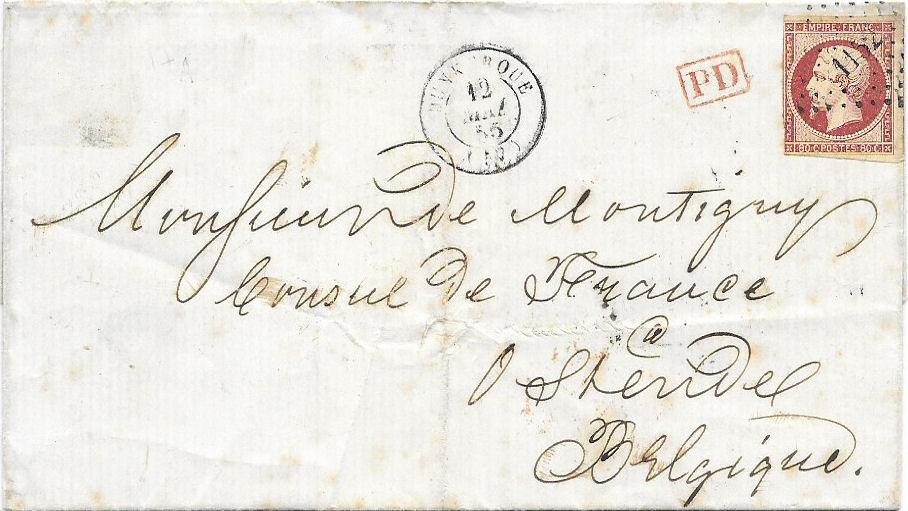 EMPIRE FRANC.
1132
80 C. POSTES 80 C.
PD
DUNKERQUE
12
MAI
55
Monsieur de Montigny
Consul de France
a
Ostende
Belgique.